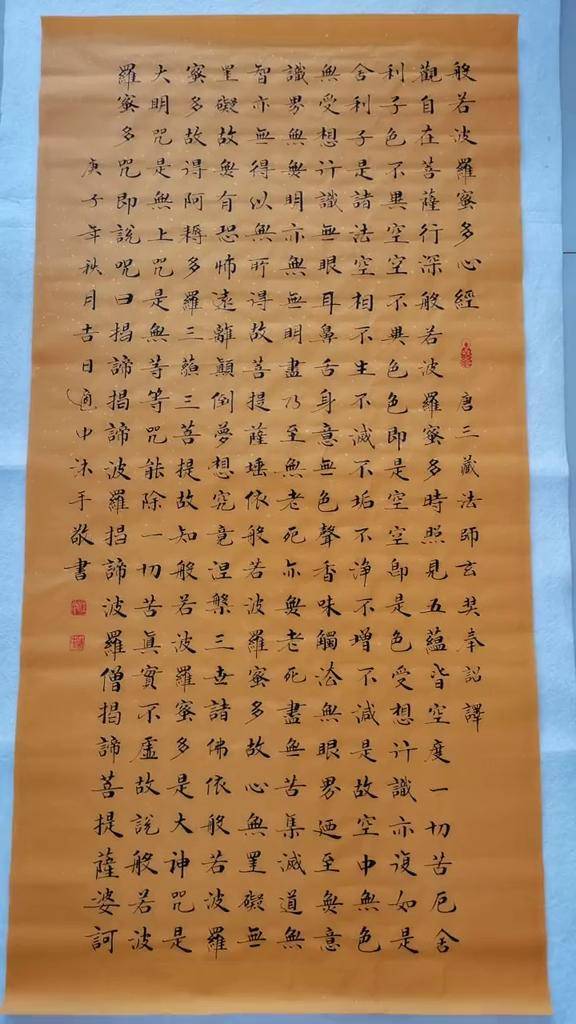 般若波羅蜜多心經 唐三藏法師玄奘奉詔譯
觀自在菩薩行深般若波羅蜜多時照見五蘊皆空度一切苦厄舍
利子色不異空空不異色色即是空空即是色受想行識亦復如是
舍利子是諸法空相不生不滅不垢不淨不增不減是故空中無色
無受想行識無眼耳鼻舌身意無色聲香味觸法無眼界迺至無意
識界無無明亦無無明盡乃至無老死亦無老死盡無苦集滅道無
智亦無得以無所得故菩提薩埵依般若波羅蜜多故心無罣礙無
罣礙故無有恐怖遠離顛倒夢想究竟涅槃三世諸佛依般若波羅
蜜多故得阿耨多羅三藐三菩提故知般若波羅蜜多是大神咒是
大明咒是無上咒是無等等咒能除一切苦真實不虛故說般若波
羅蜜多咒即說呪曰揭諦揭諦波羅揭諦波羅僧揭諦菩提薩婆訶
庚子年秋月吉日通中沐手敬書